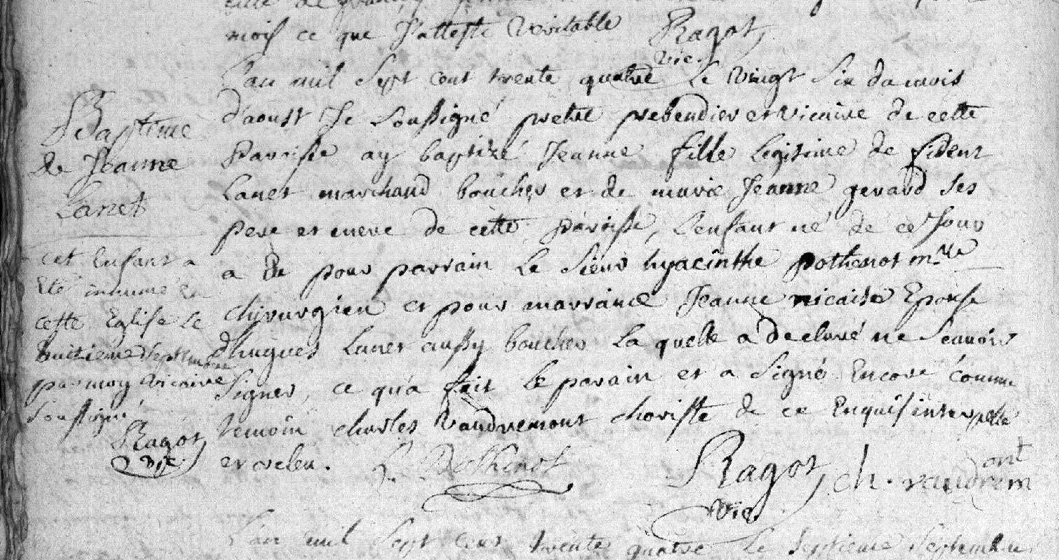 mois ce que J'atteste Veritable Ragot
vic.
L'an mil Sept cent trente quatre le Vingt Six du mois
d'aoust Je Soussigné pretre prebendier et vicaire de cette
paroisse ay baptizé Jeanne fille legitime de fident
Lanet marchand boucher et de marie Jeanne gerard Ses
pere et mere de cette paroisse, L'enfant né de ce Jour
a eu pour parrain Le Sieur hyacinthe pothenot mtre
chirurgien et pour marraine Jeanne nicaise Epouse
d'hugues Lanet aussy boucher La quelle a declaré ne Scavoir
Signer, ce qu'a fait le parain et a Signé Encore comme
temoin charles Vaudremont choriste de ce Enquis interpellé
et
Ragot
vic.
ch. vaudremont
Baptime
de Jeanne
Lanet
cet Enfant a
Eté inhumé en
cette Eglise le
huitieme Septembre
par moy Vicaire
Soussigné
Ragot
vic.
L'an mil Sept cent trente quatre le Septieme Septembre